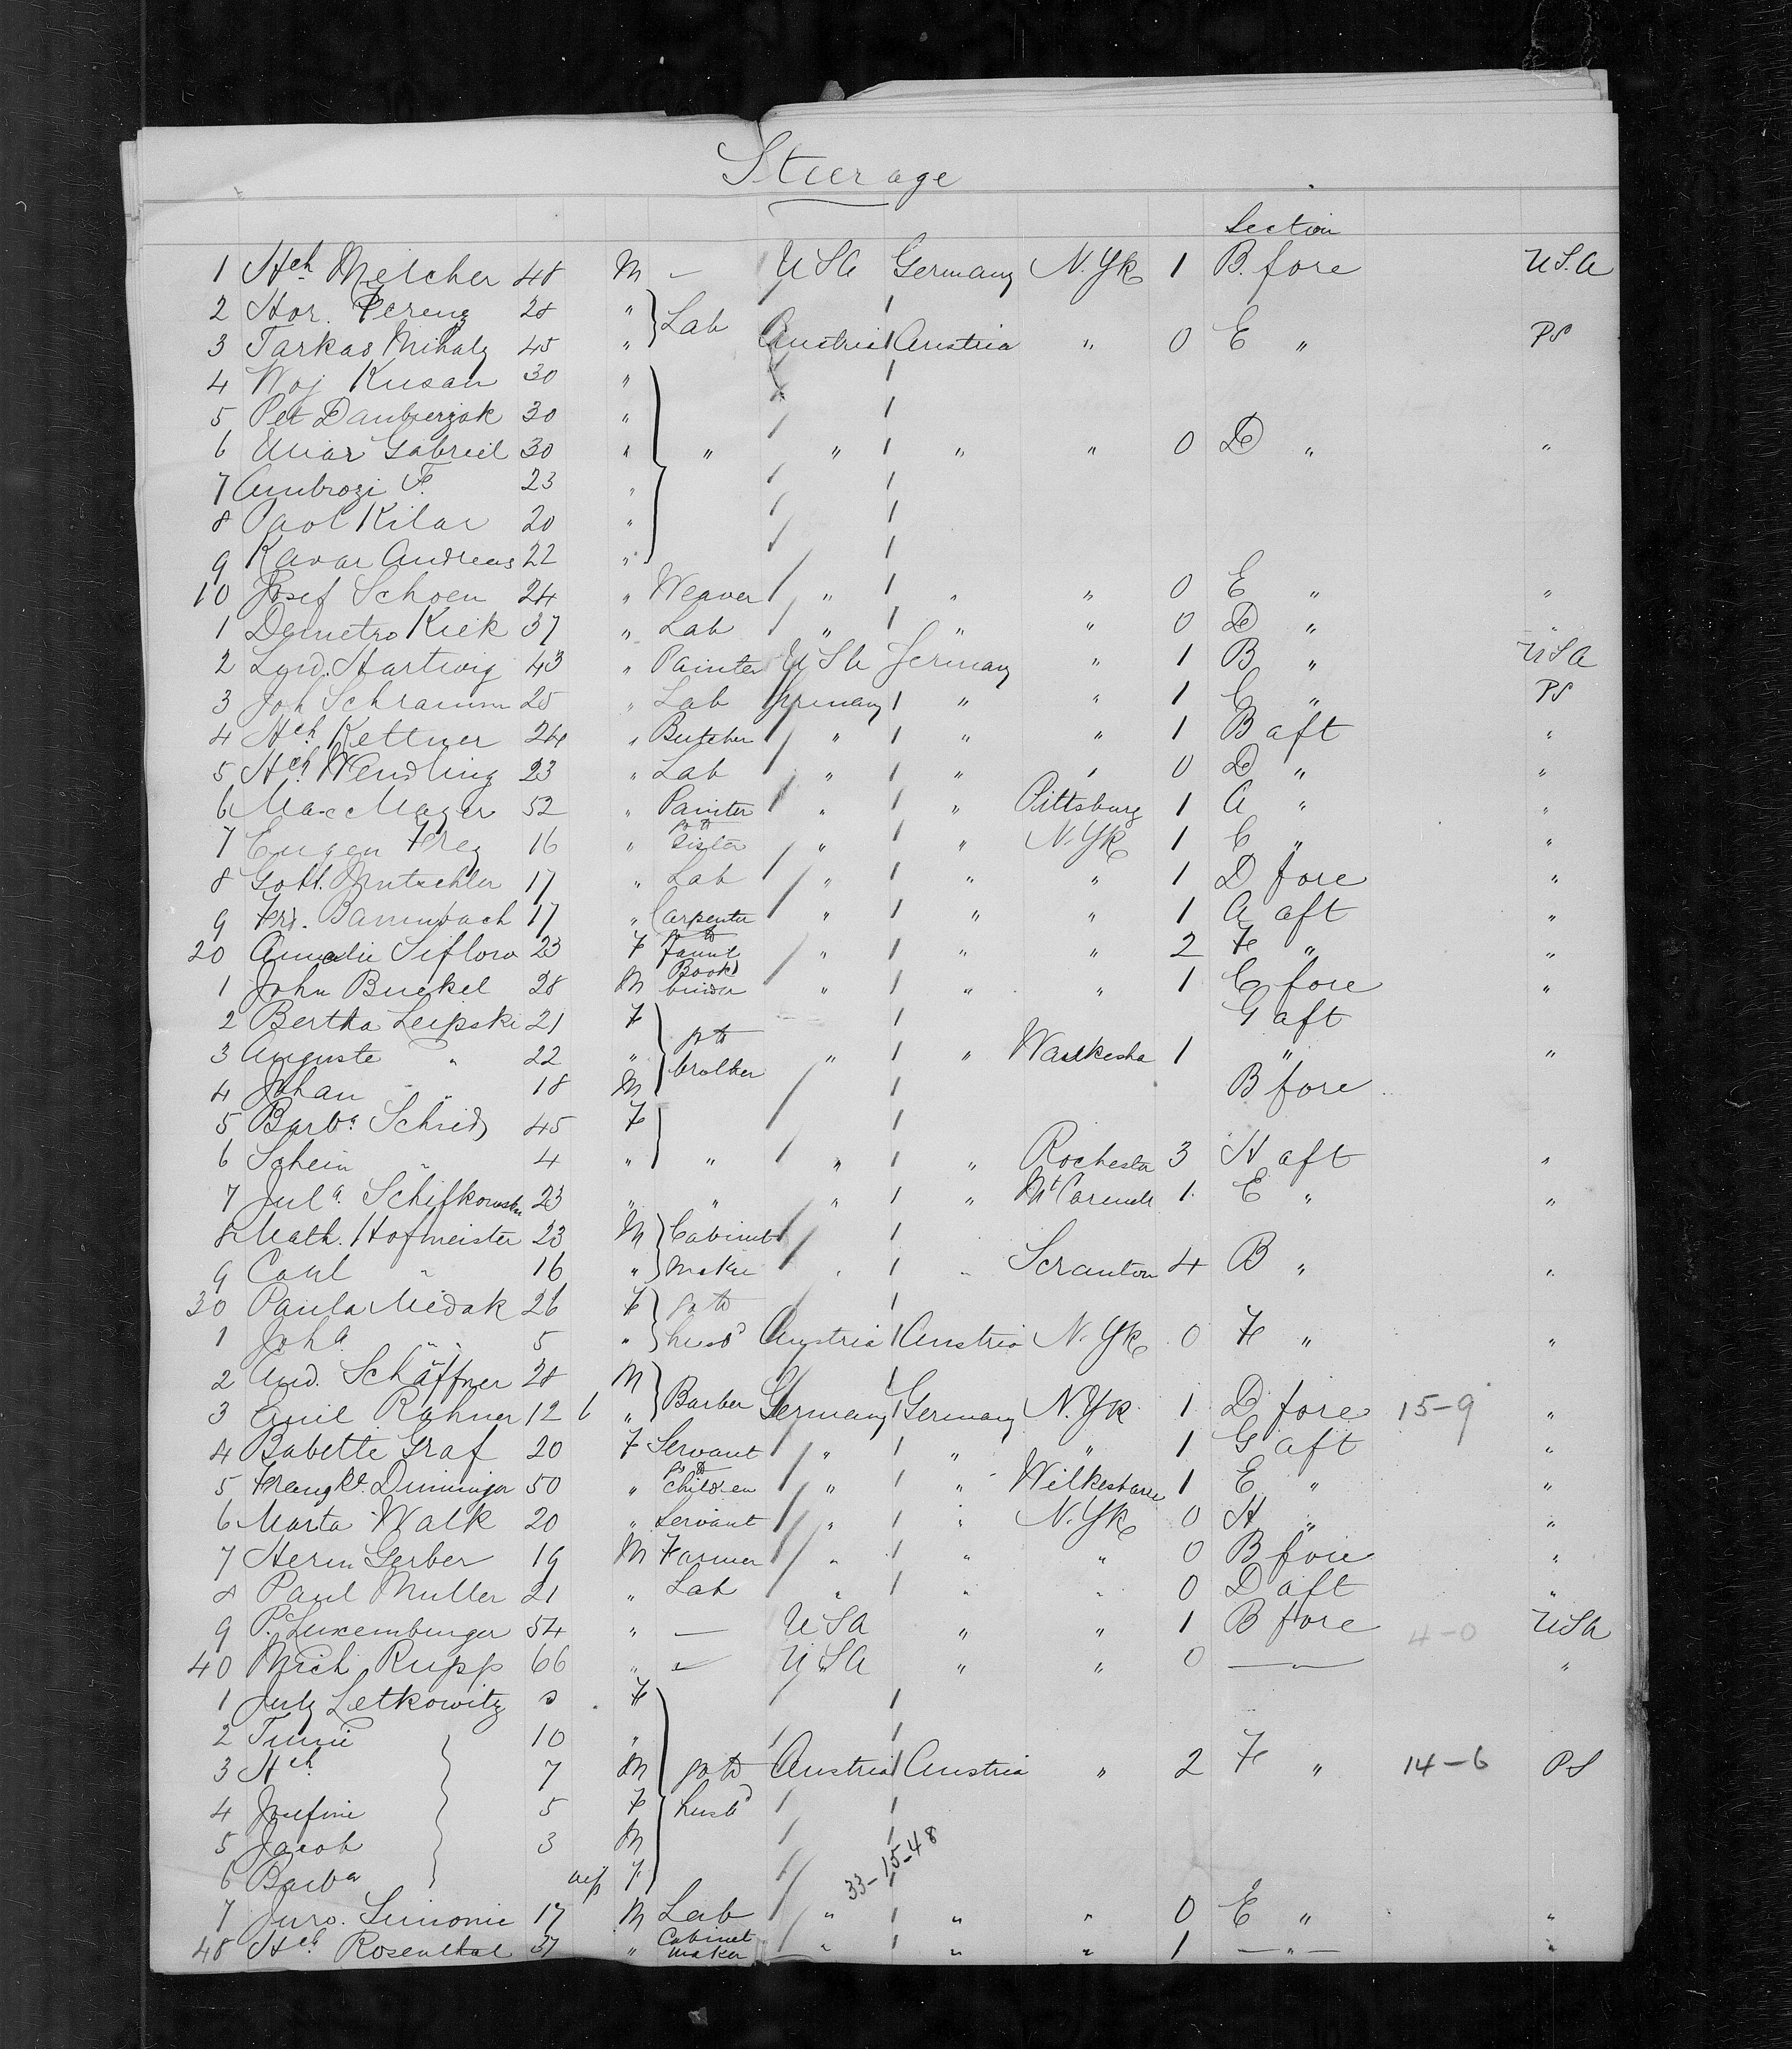 Steerage
Section
1 Hch Melcher 48 M — USA Germany N.Yk 1 B. fore USA
2 Hor. Ferenz 28 "
3 Tarkas Mihaly 45 " Lab Austria Austria " 0 E " PS
4 Woj Kusan 30 "
5 Pet 30 "
6 Gabriel 30 " " " " " 0 D " "
7 Ambrozi F. 23 "
8 Pavl Kilar 20 "
9 Kavar Andreas 22 "
10 Josef Schoen 24 " Weaver " " " 0 E " "
1 Demetro Kiek 37 " Lab " " " 0 D " "
2 Lud. Hartwig 43 " Painter USA Germany " 1 B " USA
3 Joh Schramm 25 " Lab Germany " " 1 C " PS
4 Hch Kettner 24 " Butcher " " " 1 B aft "
5 Hch Wendling 23 " Lab " " " 0 D " "
6 Max Mager 52 " Painter " " Pittsburg 1 A " "
7 Eugen Frey 16 " to Sister " " N.Yk 1 C " "
8 Gott. Mutschler 17 " Lab " " " 1 D fore "
9 Frd. Bammbach 17 " Carpenter " " " 1 A aft "
20 Amalie Siflow 23 F " " " 2 F " "
1 John Buckel 28 M Book binder " " " 1 C fore "
2 Bertha Leipski 21 F G aft
3 Auguste " 22 " go to brother " " Waukesha 1 " "
4 Johan " 18 M B fore
5 Barba Schied 45 F
6 " 4 " " " " Rochester 3 H aft "
7 Jula Schifkowski 23 " " " " Mt Carmel 1 E " "
8 Math. Hofmeister 23 M Cabinet
9 Carl " 16 " maker " " Scranton 4 B " "
30 Paula Midak 26 F go to
1 Joha " 5 " husbd Austria Austria N.Yk 0 F " "
2 And. Schäffner 28 M
3 Emil Rahner 12 6 " Barber Germany Germany N.Yk 1 D fore 15-9 "
4 Babette Graf 20 F Servant " " " 1 G aft "
5 50 " go to children " " Wilkesbarre 1 E " "
6 Marta Walk 20 " Servant " " N.Yk 0 H " "
7 Herm Gerber 19 M Farmer " " " 0 B fore "
8 Paul Muller 21 " Lab " " " 0 D aft "
9 P. Luxemburger 54 " — USA " " 1 B fore 4-0 USA
40 Mich Rupp 66 " — USA " " 0 — " — "
1 Letkowitz F
2 10 "
3 Hch 7 M go to Austria Austria " 2 F " 14-6 PS
4 Josefine 5 F husbd
5 Jacob 3 M
6 Barba F
33-15-48
7 Juro. Simonie 17 M Lab " " " 0 E " "
48 Hch Rosenthal 37 " Cabinet maker " " " 1 — " — "